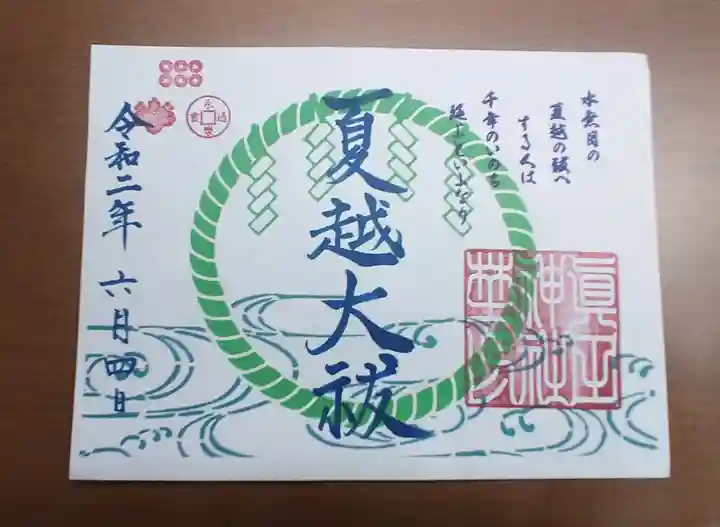 水無月の
夏越の祓へ
する人は
千年のいのち
延ぶといふなり
夏越大祓
眞田神社
永樂通寳
令和二年 六月四日